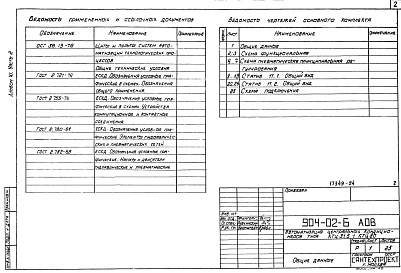 2
Ведомость примененных и ссылочных документов
Обозначение
Наименование
Примечание
ОСТ 36.13-76
Щиты и пульты систем авто-
матизации технологических про-
цессов
Общие технические условия
ГОСТ 2.721-74
ЕСКД. Обозначения условные гра-
фические в схемах. Обозначения
общего применения
ГОСТ 2.755-74
ЕСКД. Обозначения условные гра-
фические в схемах. Устройства
коммутационные и контактные
соединения
ГОСТ 2.780-68
ЕСКД. Обозначения условные гра-
фические. Элементы гидравличес-
ких и пневматических сетей
ГОСТ 2.782-68
ЕСКД. Обозначения условные гра-
фические. Насосы и двигатели
гидравлические и пневматические
Ведомость чертежей основного комплекта
Лист
Наименование
Примечание
1
Общие данные
2,3
Схема функциональная
Схема пневматическая принципиальная ре-
гулирования
Общий вид
Общий вид
25
Схема подключения
Альбом
17349-04
2
Привязан
904-02-6 АОВ
Автоматизация центральных кондицио-
неров типа КТЦ 31,5 ÷ КТЦ 80
Лист
Листов
Р
1
25
Общие данные
САНТЕХПРОЕКТ
г. Москва